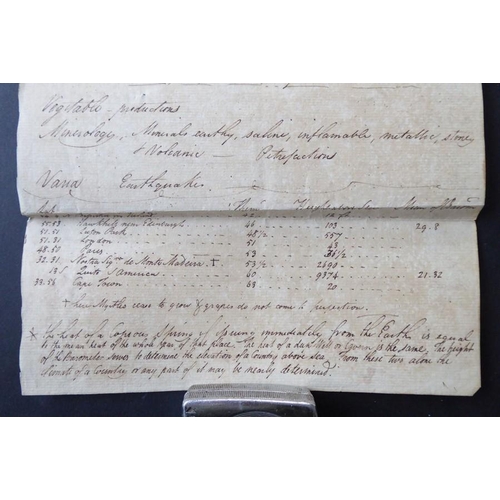 Vegetable - productions
Minerology, Minerals earthy, saline, inflamable, metallic, stoney
& Volcanic — Petrefactions
Varia Earthquakes
Lat.
55.53 near Edinburgh 46 103 29.8
51.31 Luton Park 48 1/2 557
51.31 London 51 43
48.50 Paris 53 36 1/2
32.31 Nostra de Monte Madeira † 53 1/2 2690
13 S Quito S America 60 9374 21.32
33.56 Cape Town 68 20
† here Myrtles cease to grow & grapes do not come to perfection.
* The heat of a copious Spring if Springg immediately from the Earth is equal
to the mean heat of the whole year of that place. The heat of a dark Well or is the same. The height
of the Barometer serves to determine the situation of a Country above sea. From these two alone the
Climate of a Country or any part of it may be nearly determined.